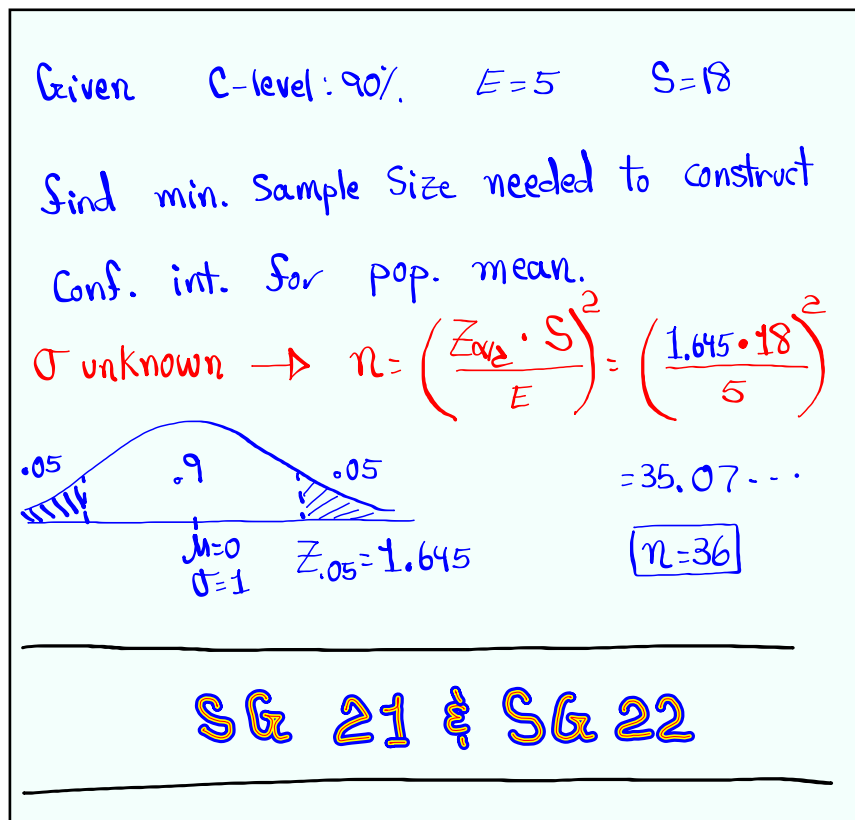 Given C-level: 90%. E=5 S=18
find min. Sample Size needed to construct
Conf. int. for pop. mean.
σ unknown → n=(Zα/2 · S / E)² = (1.645 • 18 / 5)²
.05 .9 .05 =35.07...
μ=0 Z.05=1.645 n=36
σ=1
SG 21 & SG 22